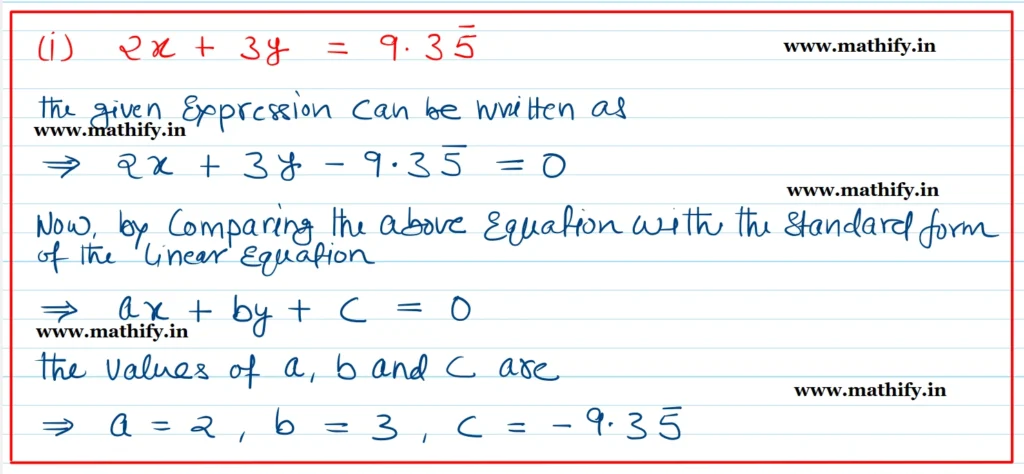 (i) 2x + 3y = 9.35̅
www.mathify.in
the given Expression can be written as
www.mathify.in
⇒ 2x + 3y - 9.35̅ = 0
www.mathify.in
Now, by Comparing the above Equation with the standard form
of the Linear Equation
⇒ ax + by + c = 0
www.mathify.in
the values of a, b and c are
www.mathify.in
⇒ a = 2, b = 3, c = -9.35̅